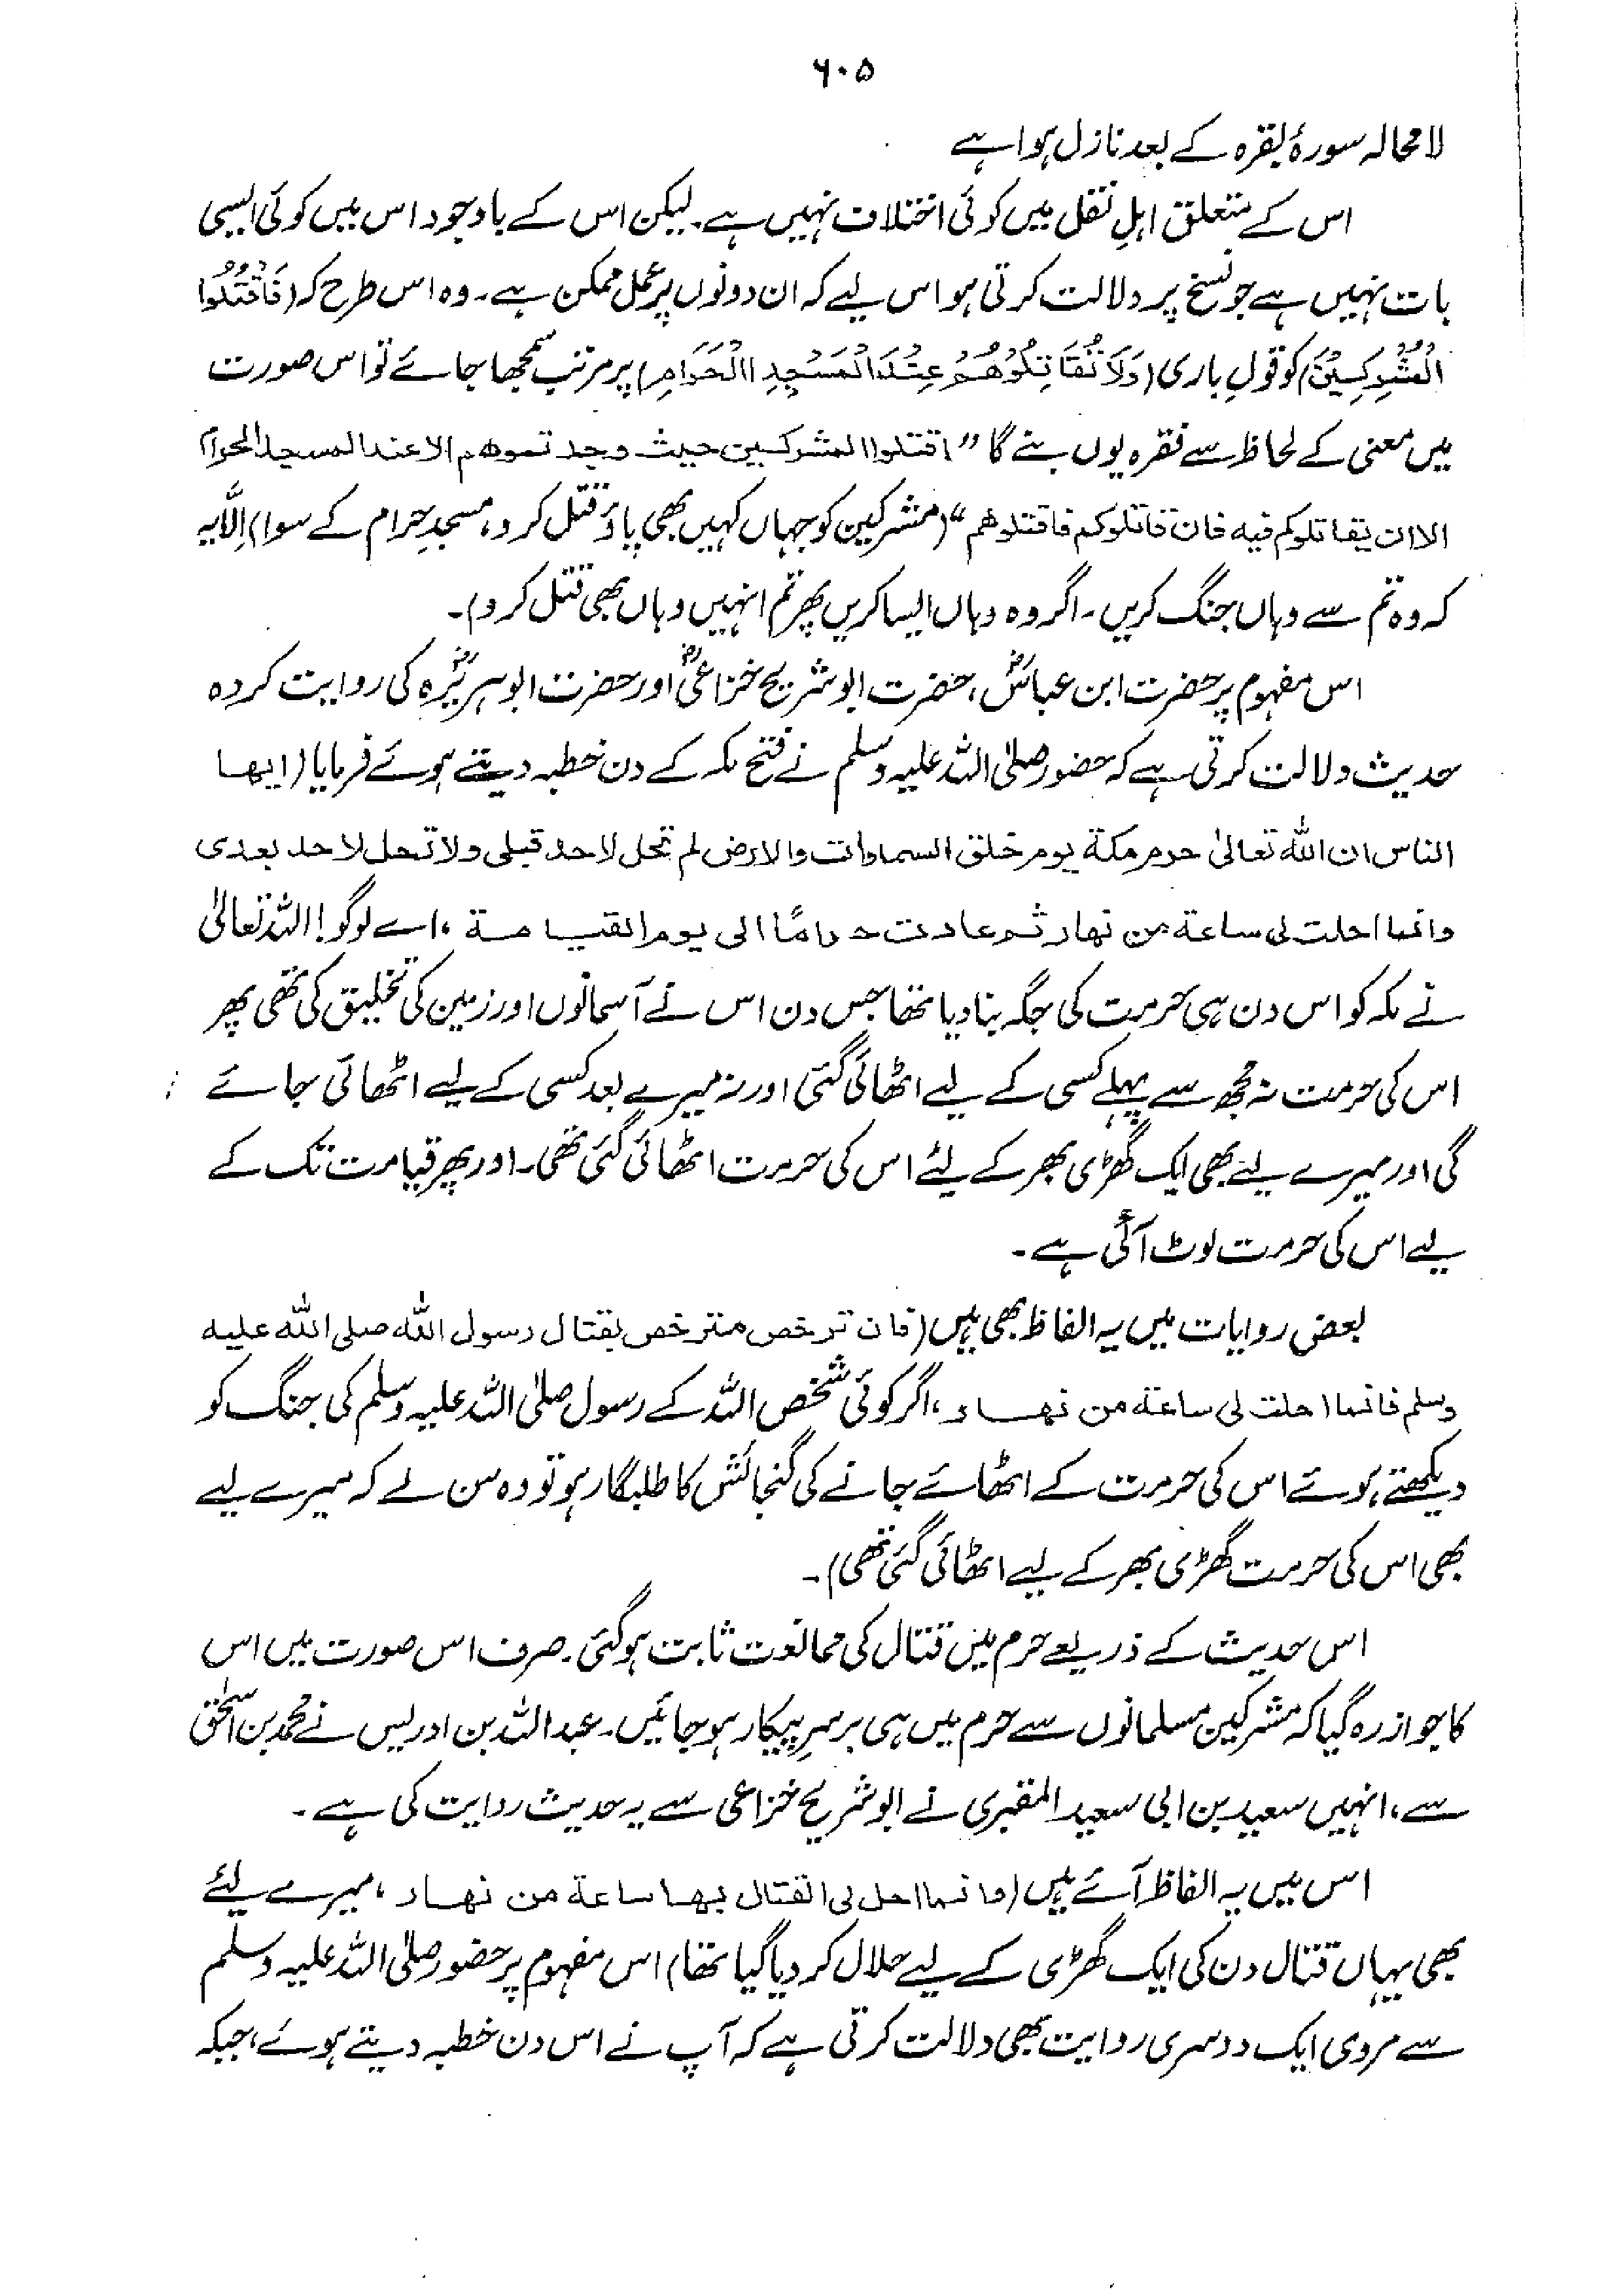 ۶۰۵
لا محالہ سورۂ بقرہ کے بعد نازل ہوا ہے
اس کے متعلق اہلِ نقل میں کوئی اختلاف نہیں ہے۔ لیکن اس کے باوجود اس میں کوئی ایسی
بات نہیں ہے جو نسخ پر دلالت کرتی ہو اس لیے کہ ان دونوں پر عمل ممکن ہے۔ وہ اس طرح کہ (فَاقْتُلُوا
الْمُشْرِكِيْنَ) کو قولِ باری (وَلَا تُقَاتِلُوْهُمْ عِنْدَ الْمَسْجِدِ الْحَرَامِ) پر مرتب سمجھا جائے تو اس صورت
میں معنی کے لحاظ سے فقرہ یوں بنے گا " اقتلوا المشركين حيث وجدتموهم الا عند المسجد الحرام
الا ان يقاتلوكم فيه فان قاتلوكم فاقتلوهم " (مشرکین کو جہاں کہیں بھی پاؤ قتل کر دو، مسجدِ حرام کے سوا، اِلّا یہ
کہ وہ تم سے وہاں جنگ کریں۔ اگر وہ وہاں ایسا کریں پھر تم انہیں وہاں بھی قتل کر دو)۔
اس مفہوم پر حضرت ابن عباسؓ، حضرت ابو شریح خزاعیؓ اور حضرت ابو ہریرہؓ کی روایت کردہ
حدیث دلالت کرتی ہے کہ حضور صلی اللہ علیہ وسلم نے فتح مکہ کے دن خطبہ دیتے ہوئے فرمایا (ایها
الناس ان الله تعالىٰ حرم مكة يوم خلق السماوات والارض لم تحل لاحد قبلى ولا تحل لاحد بعدى
وانما احلت لى ساعة من نهار ثم عادت حراما الى يوم القيامة ، اے لوگو! اللہ تعالیٰ
نے مکہ کو اس دن ہی حرمت کی جگہ بنا دیا تھا جس دن اس نے آسمانوں اور زمین کی تخلیق کی تھی پھر
اس کی حرمت نہ مجھ سے پہلے کسی کے لیے اٹھائی گئی اور نہ میرے بعد کسی کے لیے اٹھائی جائے
گی اور میرے لیے بھی ایک گھڑی بھر کے لئے اس کی حرمت اٹھائی گئی تھی۔ اور پھر قیامت تک کے
لیے اس کی حرمت لوٹ آئی ہے۔
بعض روایات میں یہ الفاظ بھی ہیں (فان ترخص مترخص بقتال رسول الله صلى الله عليه
وسلم فانما احلت لى ساعة من نهار ، اگر کوئی شخص اللہ کے رسول صلی اللہ علیہ وسلم کی جنگ کو
دیکھتے ہوئے اس کی حرمت کے اٹھائے جانے کی گنجائش کا طلبگار ہو تو وہ سن لے کہ میرے لیے
بھی اس کی حرمت گھڑی بھر کے لیے اٹھائی گئی تھی)۔
اس حدیث کے ذریعے حرم میں قتال کی ممانعت ثابت ہوگئی۔ صرف اس صورت میں اس
کا جواز رہ گیا کہ مشرکین مسلمانوں سے حرم میں ہی برسرِ پیکار ہو جائیں۔ عبداللہ بن ادریس نے محمد بن اسحٰق
سے، انہیں سعید بن ابی سعید المقبری نے ابو شریح خزاعی سے یہ حدیث روایت کی ہے۔
اس میں یہ الفاظ آئے ہیں (وانما احل لى القتال بها ساعة من نهار ، میرے لئے
بھی یہاں قتال دن کی ایک گھڑی کے لیے حلال کر دیا گیا تھا) اس مفہوم پر حضور صلی اللہ علیہ وسلم
سے مروی ایک دوسری روایت بھی دلالت کرتی ہے کہ آپ نے اس دن خطبہ دیتے ہوئے، جبکہ